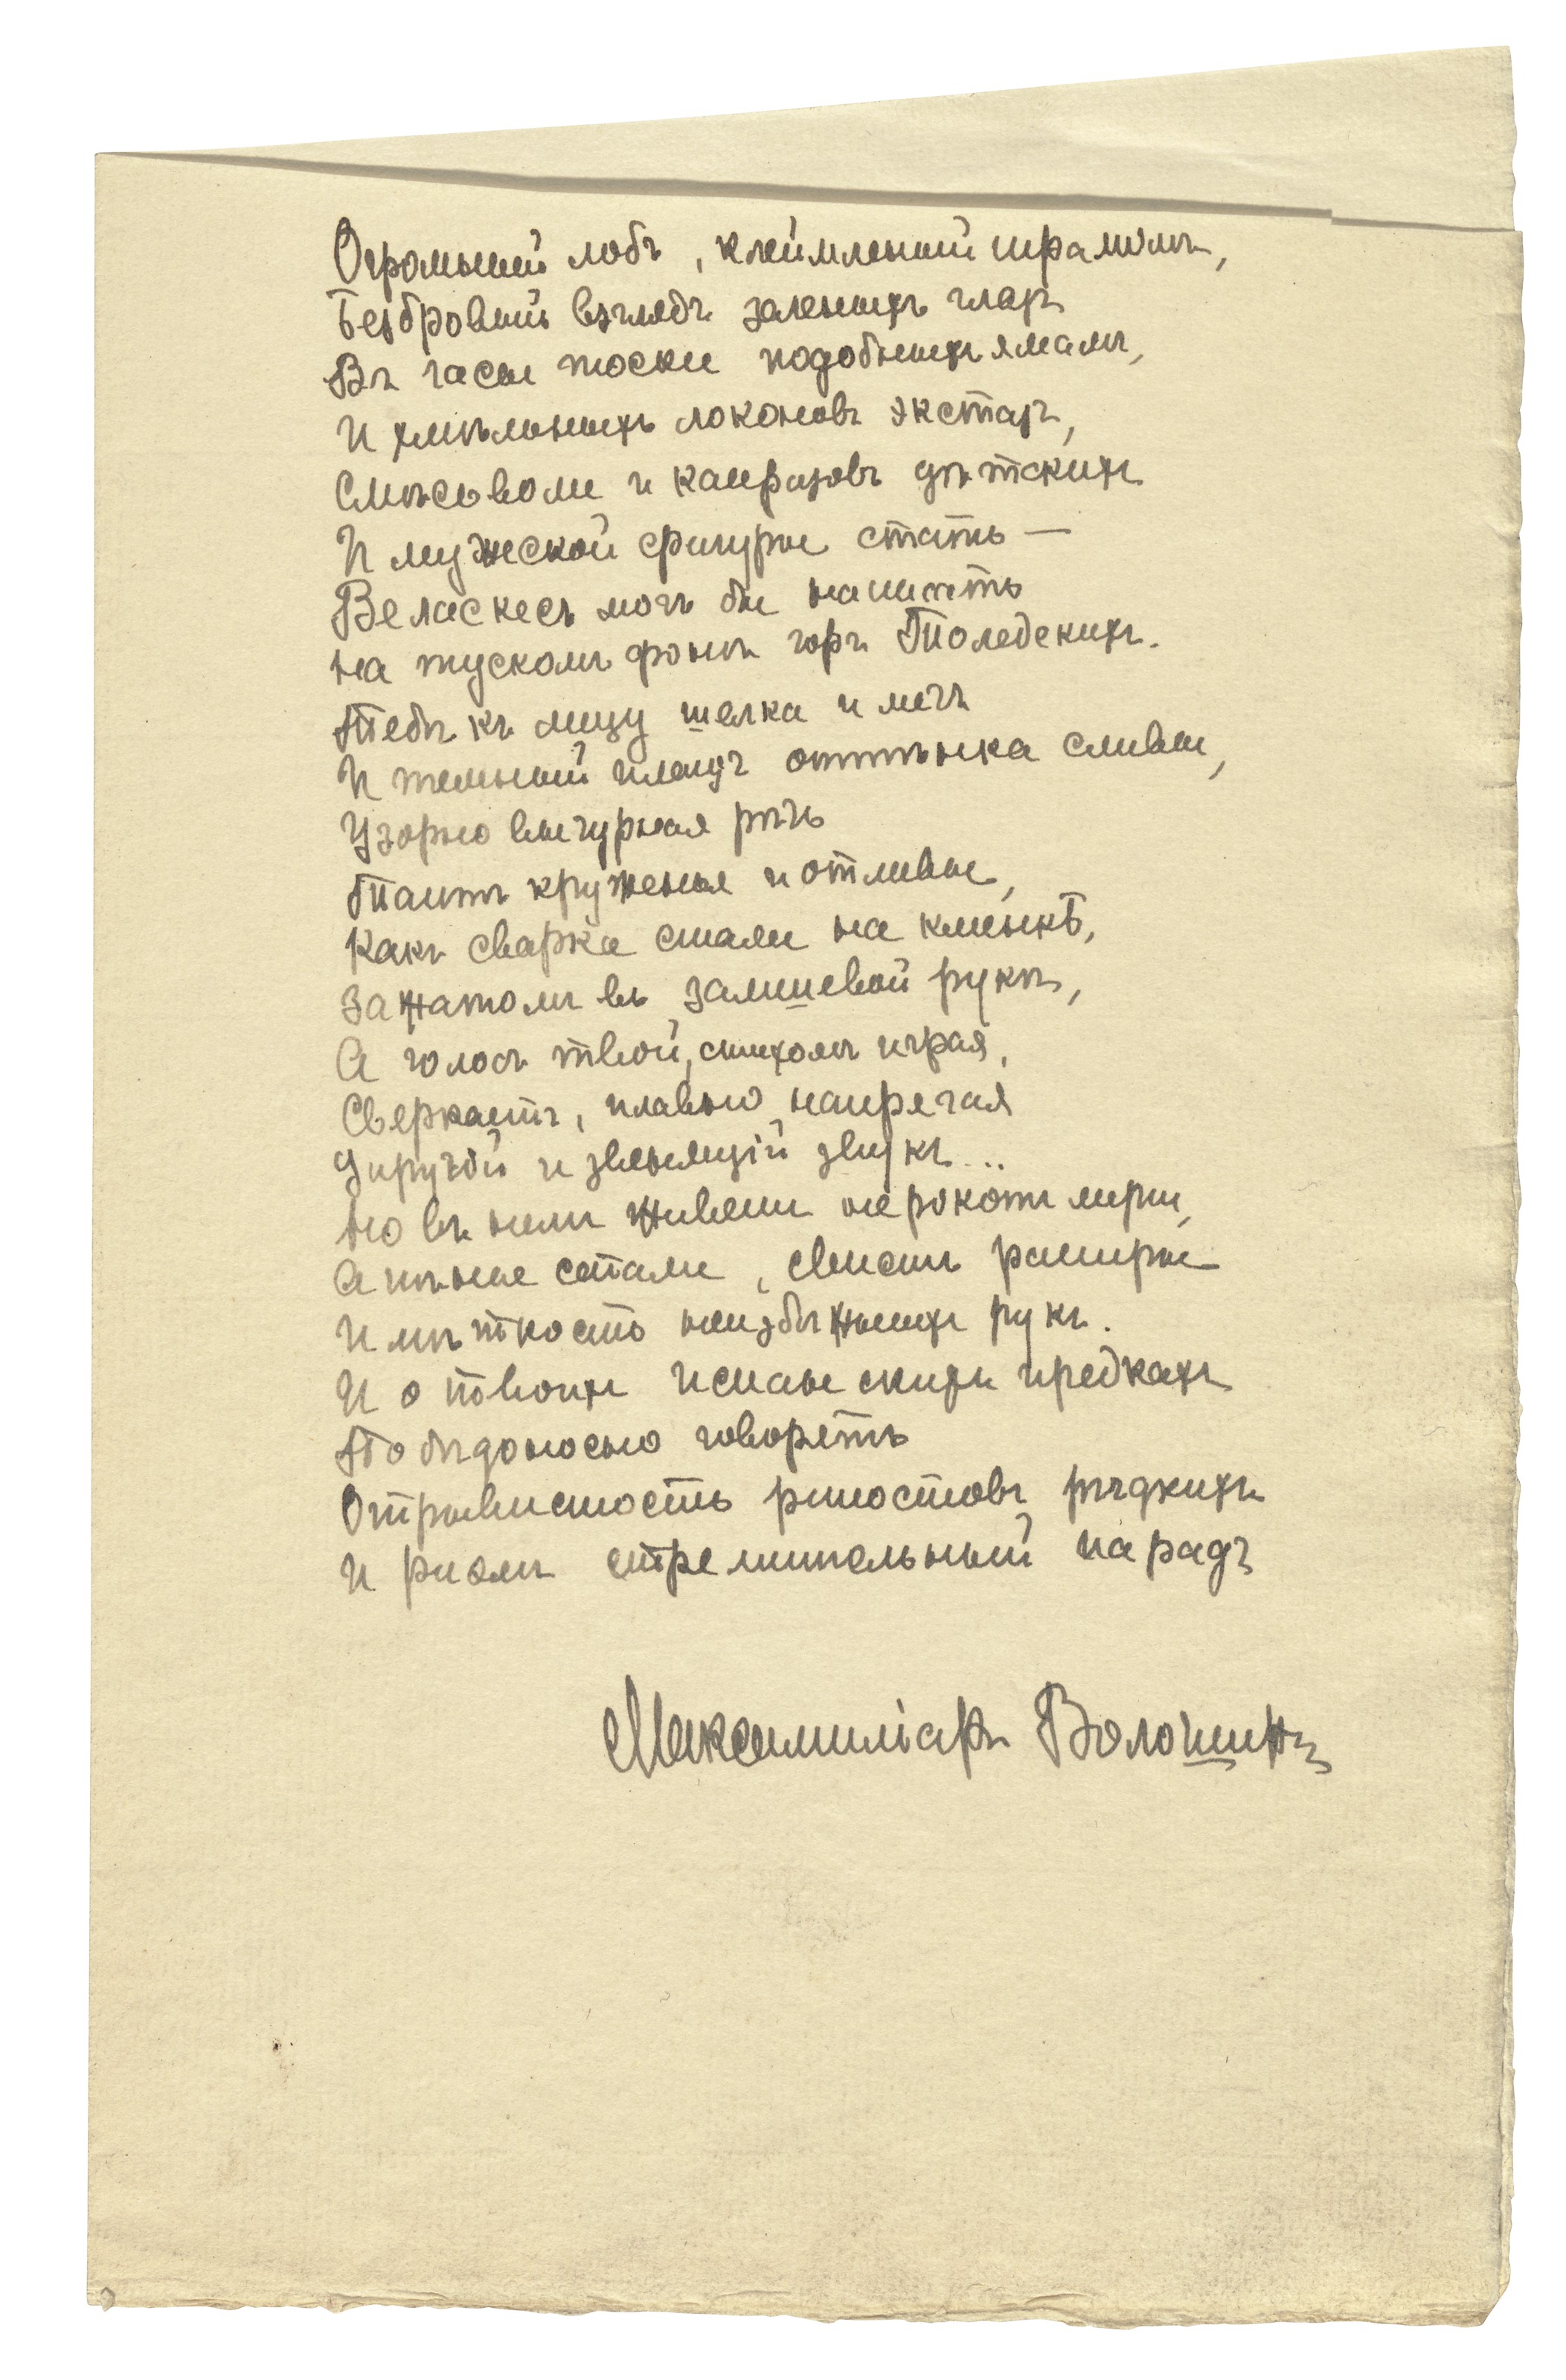 Огромный лобъ, клейменый шрамомъ,
Безбровый взглядъ зеленыхъ глазъ
Въ часы тоски подобныхъ ямамъ,
И хмѣльныхъ локоновъ экстазъ,
Смѣсь воли и капризовъ дѣтскихъ
И мужеской фигуры стать —
Веласкесъ могъ бы написать
На тускломъ фонѣ горъ Толедскихъ.
Тебѣ къ лицу шелка и мечъ
И темный плащъ оттѣнка сливы,
Узорно вычурная рѣчь
Таитъ круженья и отливы,
Какъ сварка стали на клинкѣ,
Зажатомъ въ замшевой рукѣ,
А голосъ твой, стихомъ играя,
Сверкаетъ, плавно напрягая
Упругій и звенящій звукъ...
Но въ немъ живетъ не рокотъ лиры,
А пѣнье стали, свистъ рапиры
И мѣткость неизбѣжныхъ рукъ.
И о твоихъ испанскихъ предкахъ
Побѣдоносно говорятъ
Отрывистость рипостовъ рѣдкихъ
И риѳмъ стремительный парадъ
Максимиліанъ Волошинъ